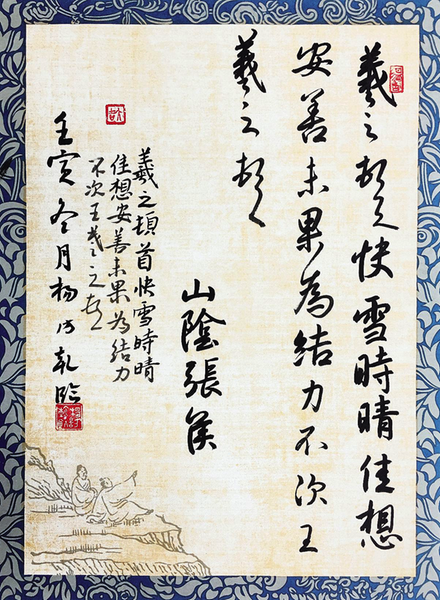 羲之頓首快雪時晴佳想
安善未果為結力不次王
羲之頓首
山陰張侯
羲之頓首快雪時晴
佳想安善未果為結力
不次王羲之頓首
壬寅冬月杨乾临